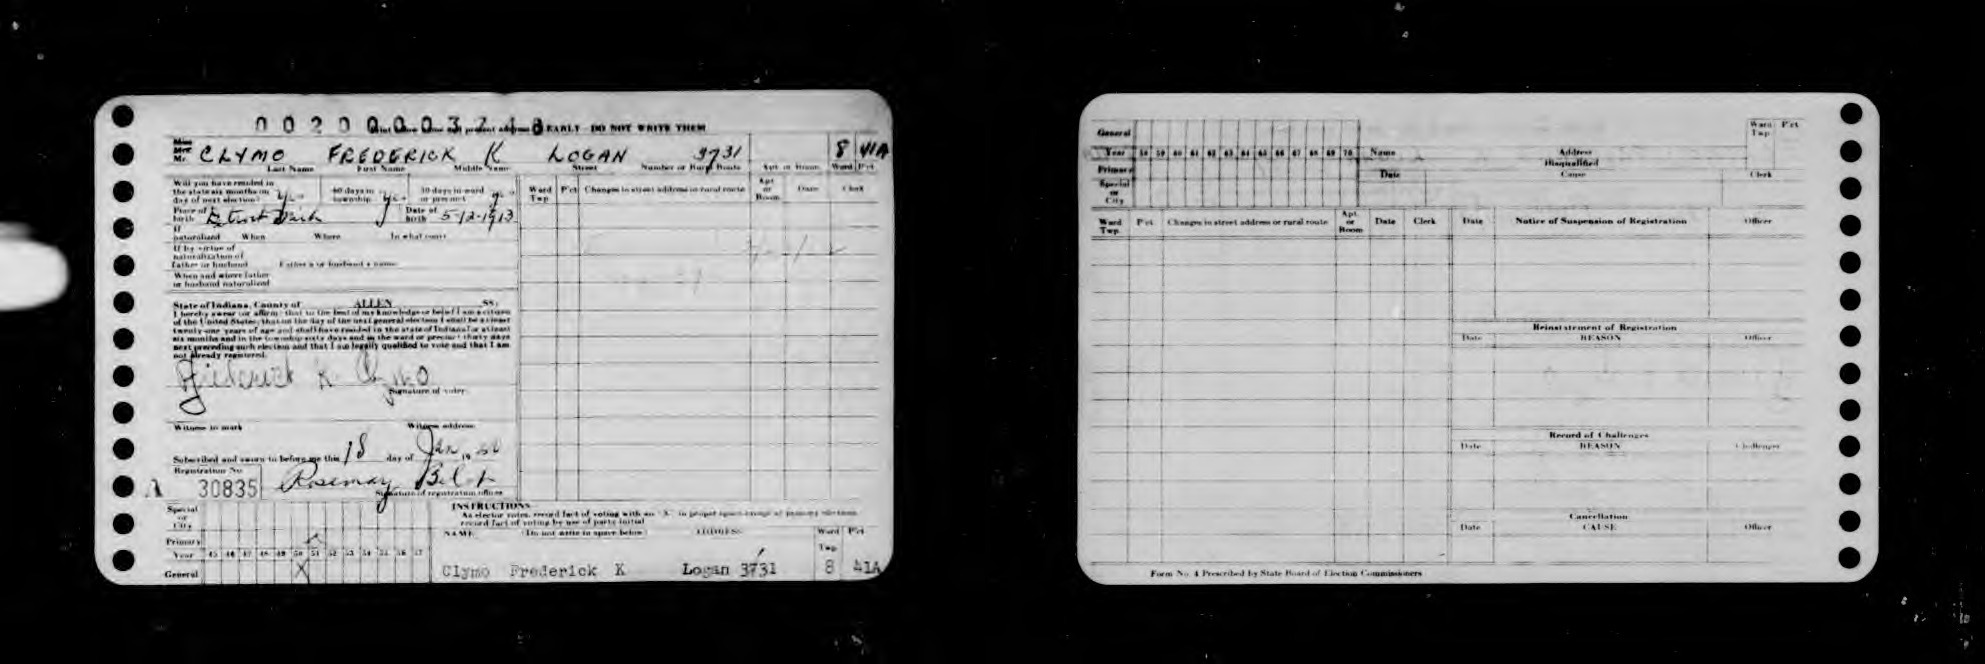 0 0 2 0 0 0 0 3 7
EARLY - DO NOT WRITE THEM
Miss
Mrs.
Mr. CLYMO FREDERICK K LOGAN 3731 8 41A
Last Name First Name Middle Name Street Number or Rural Route Apt. or Room Ward P'ct
Will you have resided in
the state six months on
day of next election? Yes
60 days in
township Yes
30 days in ward
or precinct
Place of
birth Detroit Mich
Date of
birth 5-12-1913
If
naturalized When Where In what court
If by virtue of
naturalization of
father or husband Father's or husband's name
When and where father
or husband naturalized
State of Indiana, County of ALLEN SS:
I hereby swear (or affirm) that to the best of my knowledge or belief I am a citizen
of the United States; that on the day of the next general election I shall be at least
twenty-one years of age and shall have resided in the state of Indiana for at least
six months and in the township sixty days and in the ward or precinct thirty days
next preceding such election and that I am legally qualified to vote and that I am
not already registered.
Frederick K Clymo
Signature of voter
Witness to mark Witness address
Subscribed and sworn to before me this 18 day of Jan 19 50
Registration No.
A 30835 Rosemary
Signature of registration officer
Ward
Twp P'ct Changes in street address or rural route Apt.
or
Room Date Clerk
Special
or
City
Primary
Year 45 46 47 48 49 50 51 52 53 54 55 56 57
General X
INSTRUCTIONS
As elector votes, record fact of voting with an "X" in proper space except at primary elections
record fact of voting by use of party initial
NAME (Do not write in space below) ADDRESS Ward
Twp P'ct
Clymo Frederick K Logan 3731 8 41A
General
Year 58 59 60 61 62 63 64 65 66 67 68 69 70
Primary
Special
or
City
Name Address Ward
Twp P'ct
Disqualified
Date Cause Clerk
Ward
Twp P'ct Changes in street address or rural route Apt.
or
Room Date Clerk
Date Notice of Suspension of Registration Officer
Reinstatement of Registration
Date REASON Officer
Record of Challenges
Date REASON Challenger
Cancellation
Date CAUSE Officer
Form No. 4 Prescribed by State Board of Election Commissioners